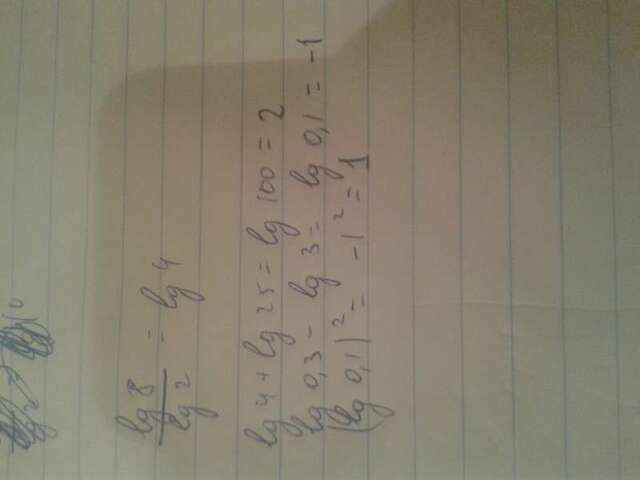 lg 8 / lg 2 = lg 4
lg 4 + lg 25 = lg 100 = 2
lg 0,3 - lg 3 = lg 0,1 = -1
(lg 0,1)² = -1² = 1